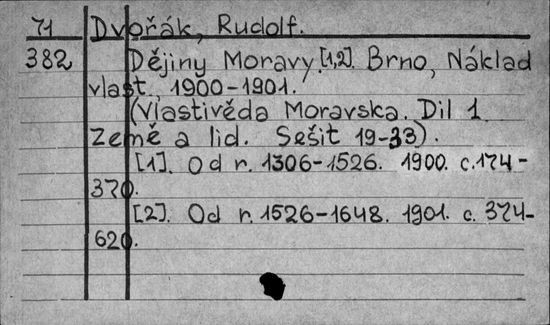 71 Dvořák, Rudolf.
382 Dějiny Moravy [1,2]. Brno, Náklad
vlast. 1900-1901.
(Vlastivěda Moravska. Dil 1
Země a lid. Sešit 19-33).
[1]. Od r. 1306-1526. 1900. c.174-
370.
[2]. Od r. 1526-1648. 1901. c. 374-
620.